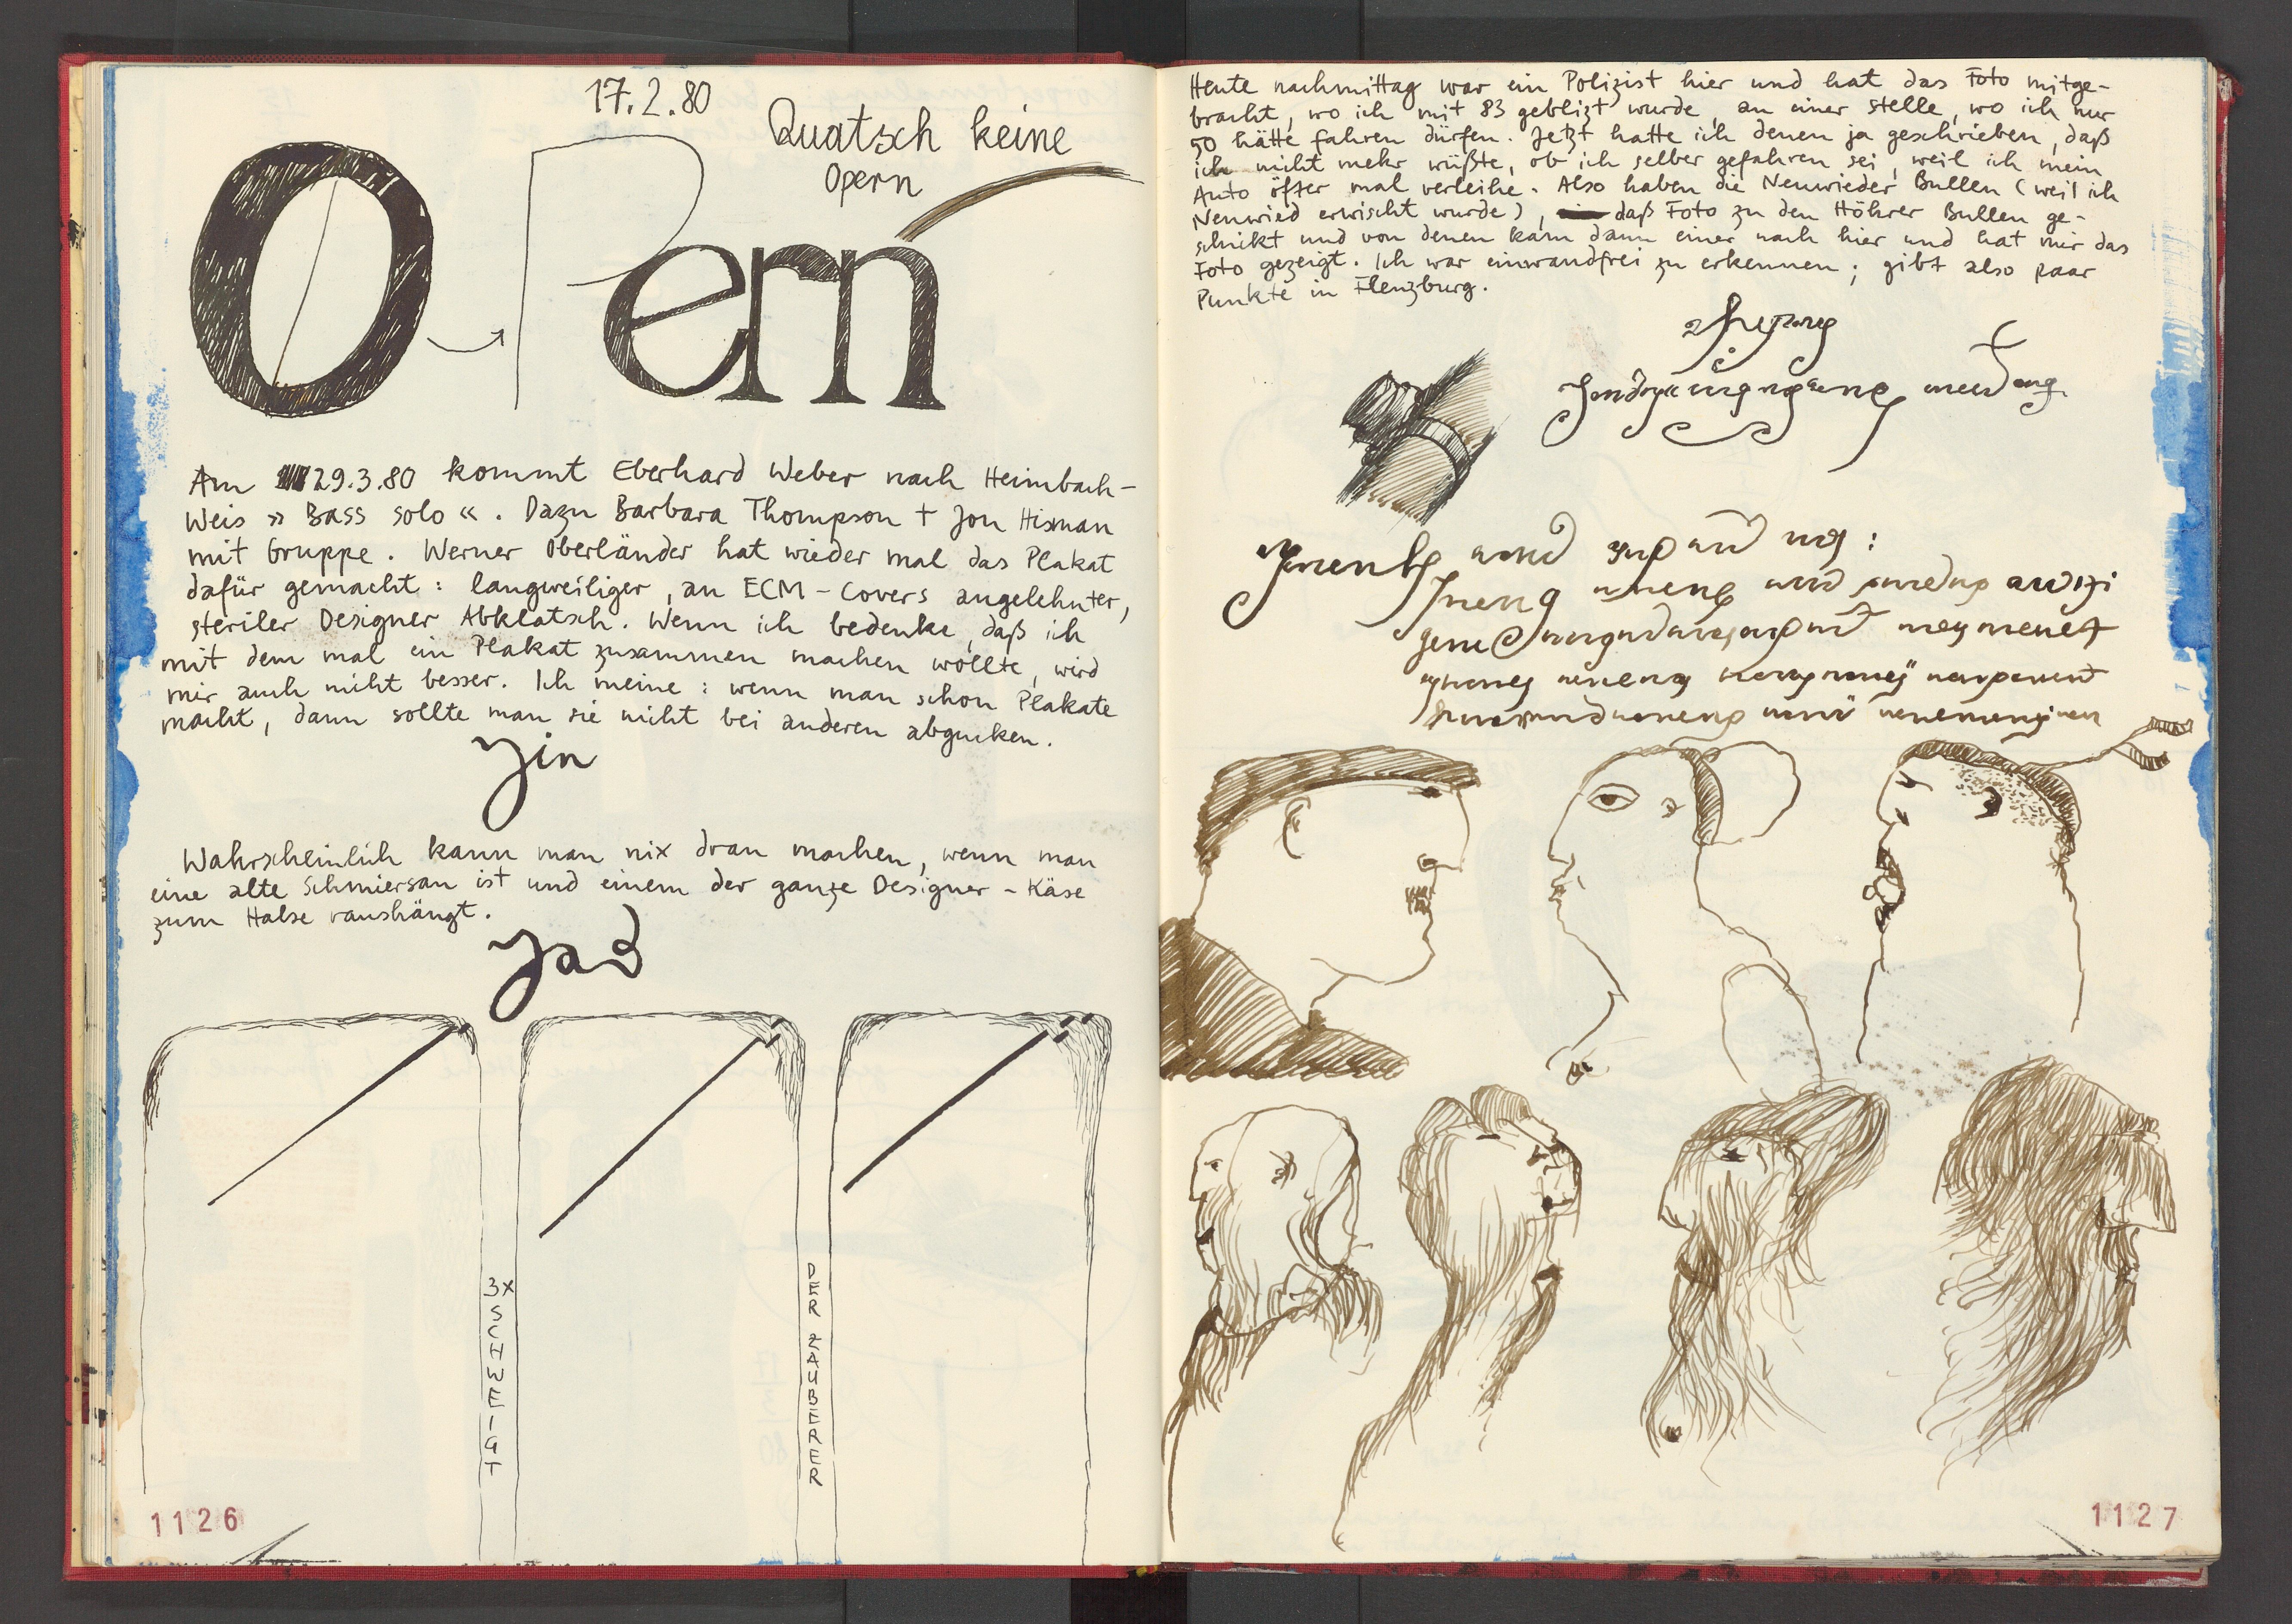 17.2.80
Quatsch keine
Opern
OPern
Am 29.3.80 kommt Eberhard Weber nach Heimbach-
Weis » Bass solo «. Dazu Barbara Thompson + Jon Hisman
mit Gruppe. Werner Oberländer hat wieder mal das Plakat
dafür gemacht: langweiliger, an ECM-Covers angelehnter,
steriler Designer Abklatsch. Wenn ich bedenke, daß ich
mit dem mal ein Plakat zusammen machen wollte, wird
mir auch nicht besser. Ich meine: wenn man schon Plakate
macht, dann sollte man sie nicht bei anderen abgucken.
Yin
Wahrscheinlich kann man nix dran machen, wenn man
eine alte Schmiersau ist und einem der ganze Designer-Käse
zum Halse raushängt.
3X SCHWEIGT
DER ZAUBERER
1126
Heute nachmittag war ein Polizist hier und hat das Foto mitge-
bracht, wo ich mit 83 geblizt wurde, an einer Stelle, wo ich nur
50 hätte fahren dürfen. Jetzt hatte ich denen ja geschrieben, daß
ich nicht mehr wüßte, ob ich selber gefahren sei, weil ich mein
Auto öfter mal verleihe. Also haben die Neuwieder Bullen (weil ich
Neuwied erwischt wurde), daß Foto zu den Höhrer Bullen ge-
schickt und von denen kam dann einer nach hier und hat mir das
Foto gezeigt. Ich war einwandfrei zu erkennen; gibt also paar
Punkte in Flenzburg.
1127